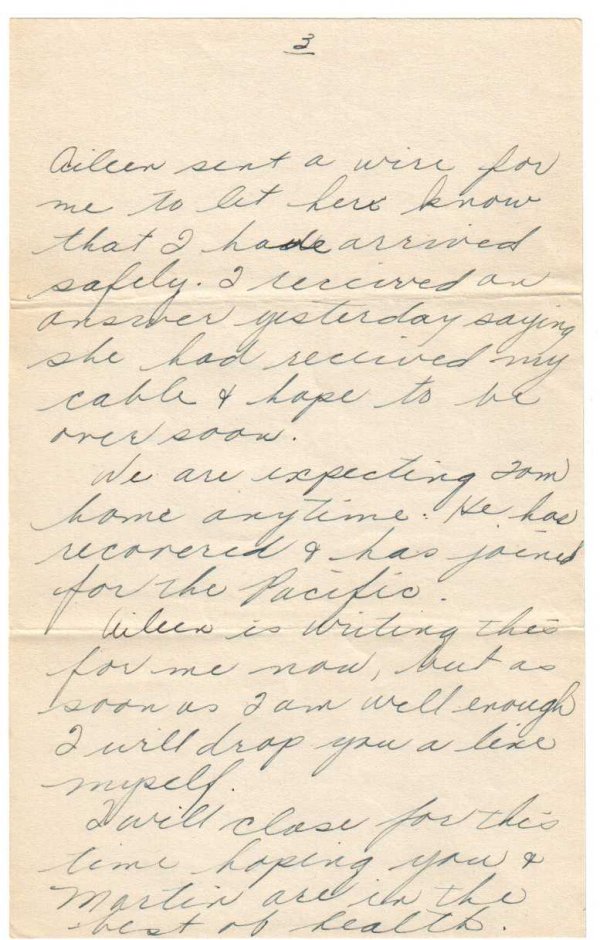 3
Aileen sent a wire for
me to let her know
that I have arrived
safely. I received an
answer yesterday saying
she had received my
cable & hope to be
over soon.
We are expecting Tom
home anytime. He has
recovered & has joined
for the Pacific.
Aileen is writing this
for me now, but as
soon as I am well enough
I will drop you a line
myself.
I will close for this
time hoping you &
Martin are in the
best of health.